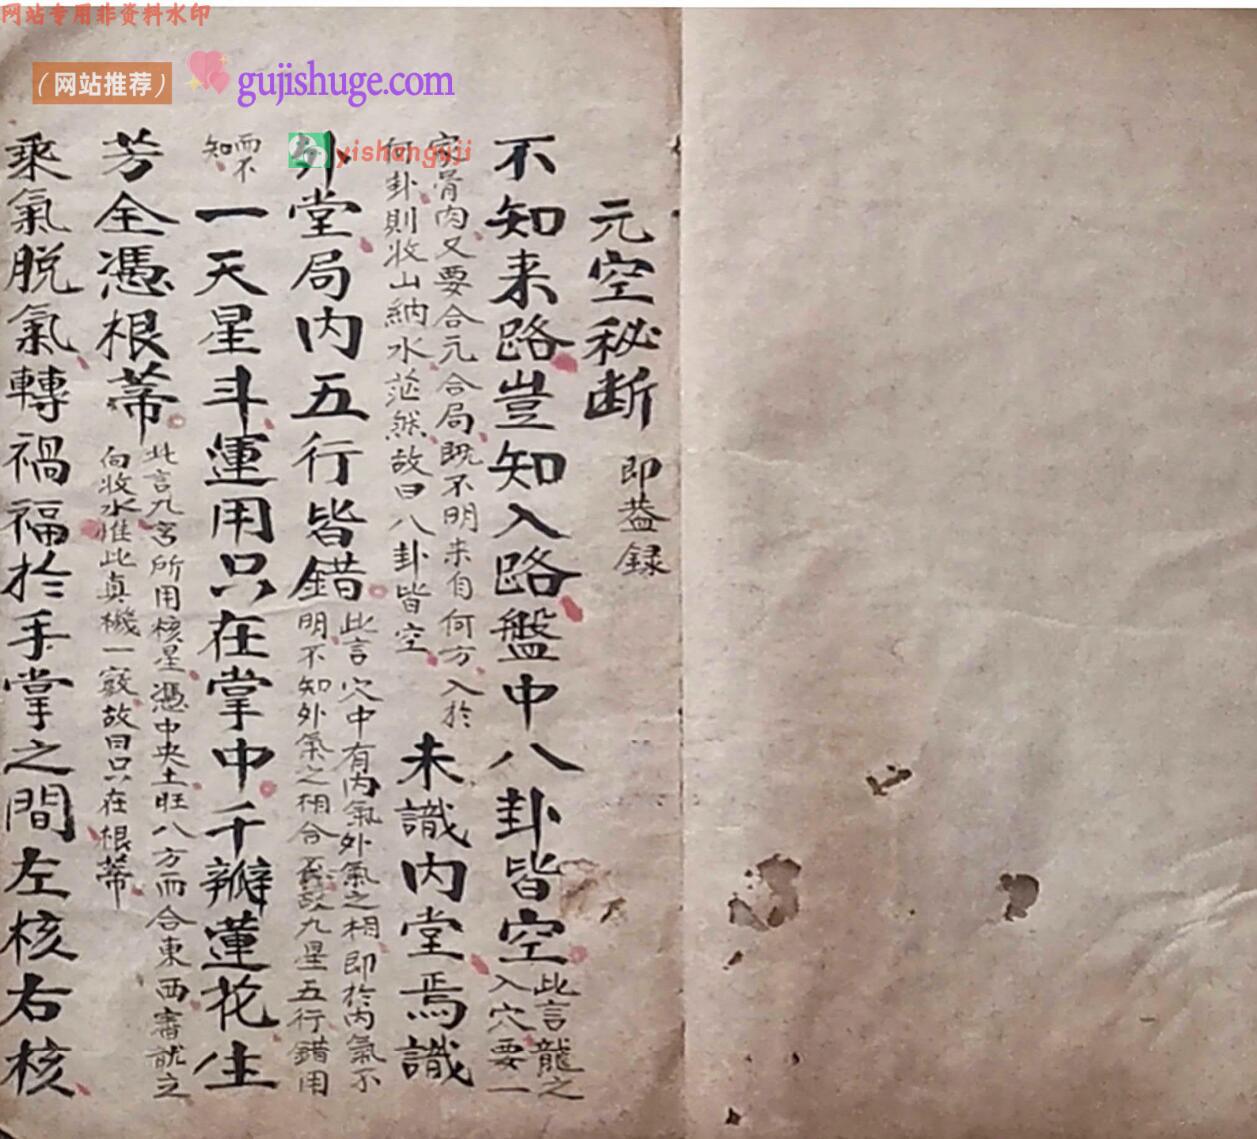 网站专用非资料水印
（网站推荐）
gujishuge.com
yishanguji
元空秘断
即葢録
不知来路豈知入路盤中八卦皆空
此言龍之
入穴要一
家骨肉又要合元合局既不明来自何方入於
何卦則收山納水茫然故曰八卦皆空
未識内堂焉識
外堂局内五行皆錯
此言穴中有内氣外氣之相即於内氣不
明不知外氣之相合故九星五行錯用
而不
知
一天星斗運用只在掌中千瓣蓮花生
芳全憑根蒂
此言九宮所用核星憑中央土旺八方而合東西審龍之
向收水惟此真機一竅故曰只在根蒂
乘氣脱氣轉禍福於手掌之間左核右核